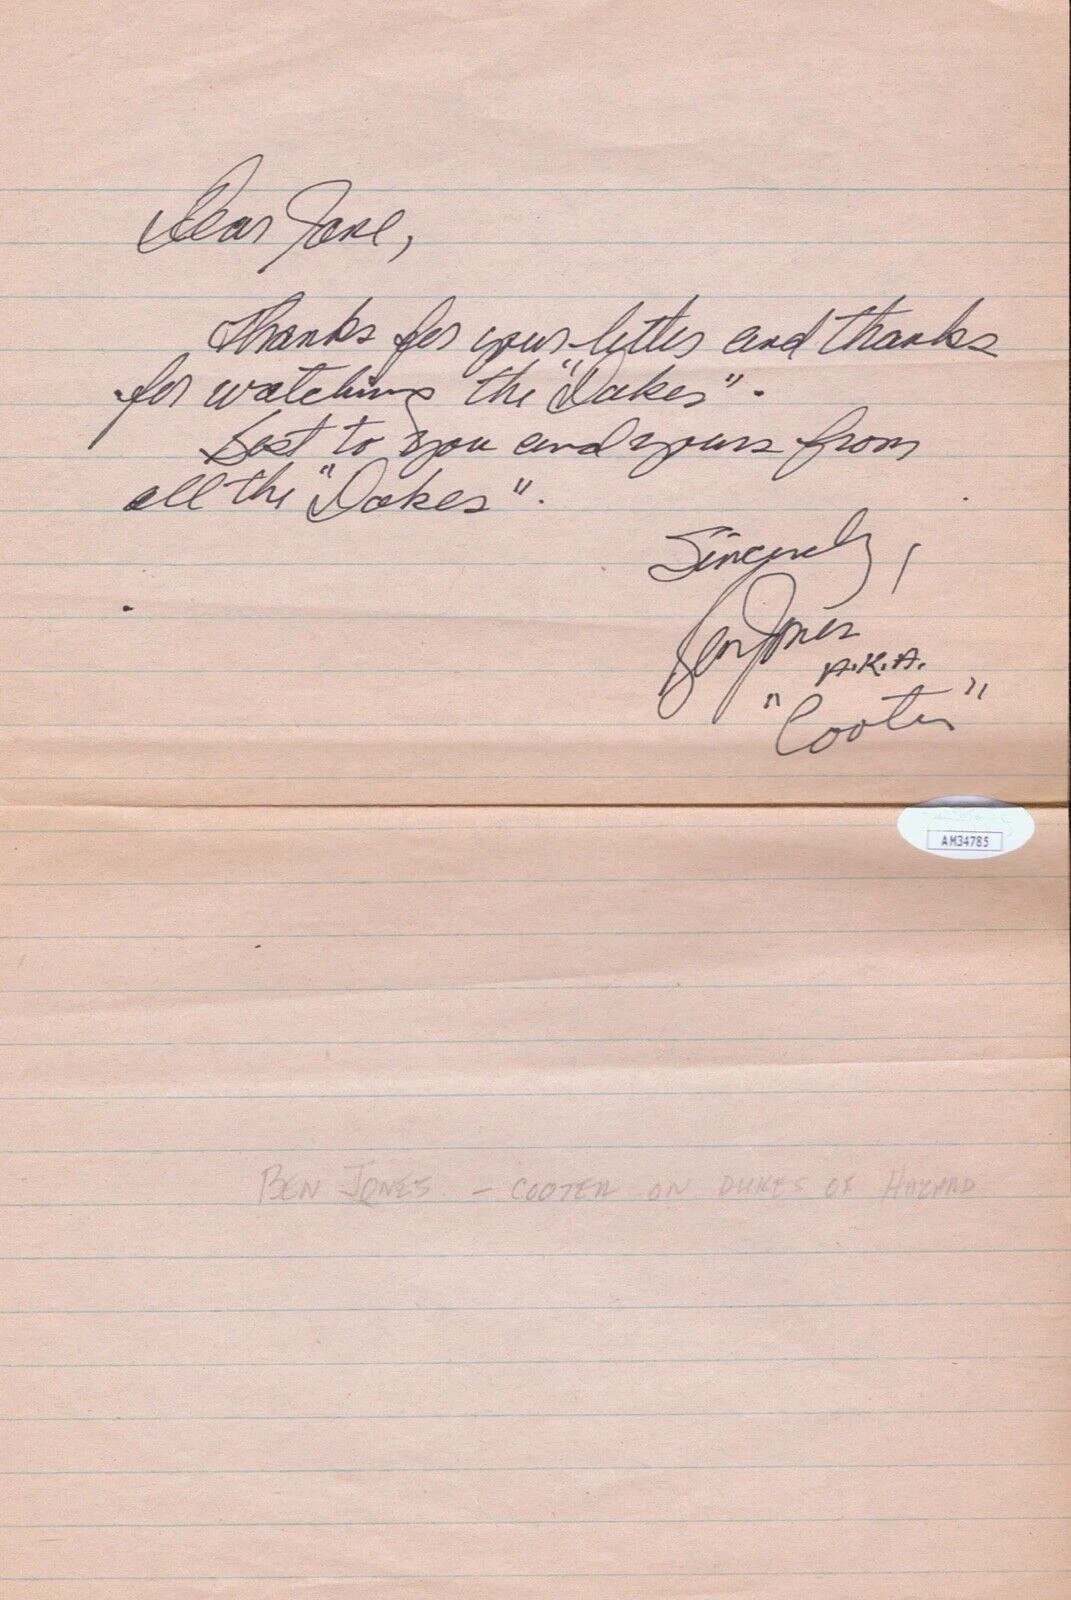 Dear Jane,
Thanks for your letter and thanks
for watching the "Dukes".
Best to you and yours from
all the "Dukes".
Sincerely,
Ben Jones
A.K.A.
"Cooter"
AM34785
BEN JONES - COOTER ON DUKES OF HAZARD